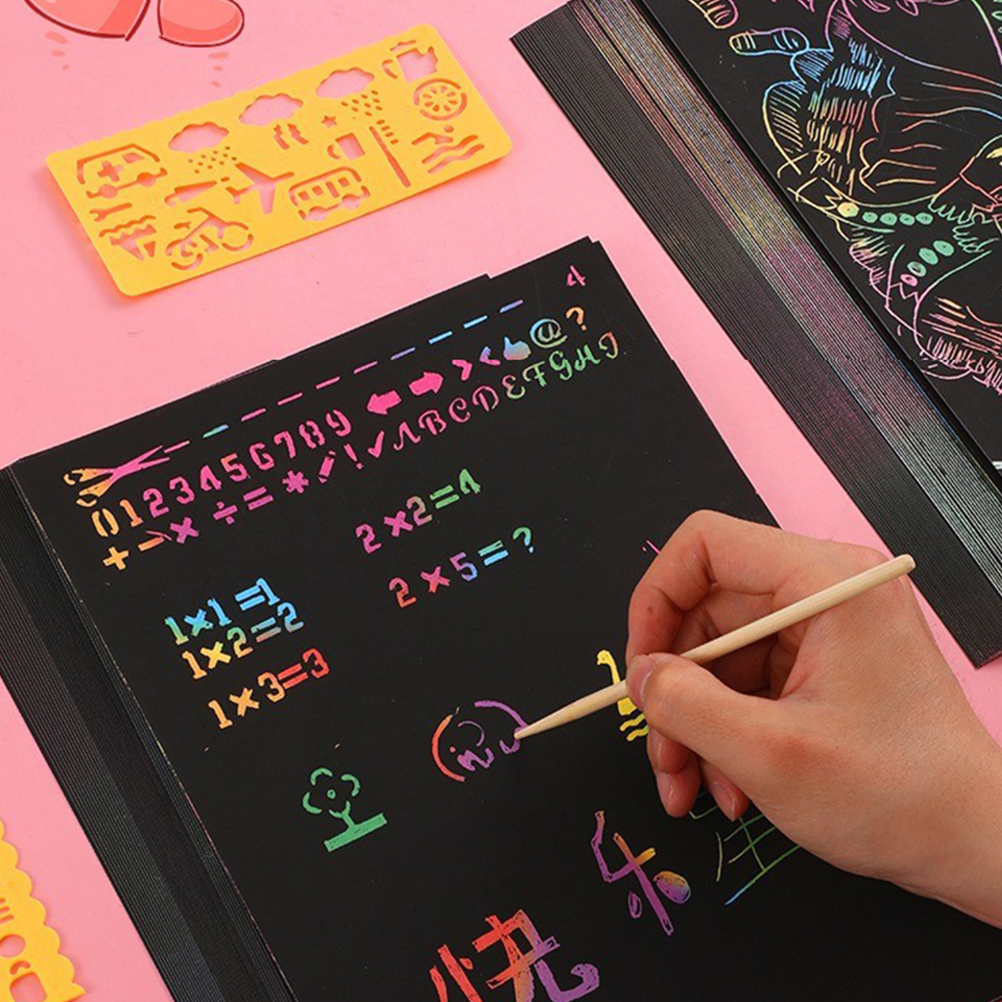 4
0123456789 ← → > < @ ?
+ - × ÷ = * ! ✓ ABCDEFGHI
2×2=4
2×5=?
1×1=1
1×2=2
1×3=3
快乐